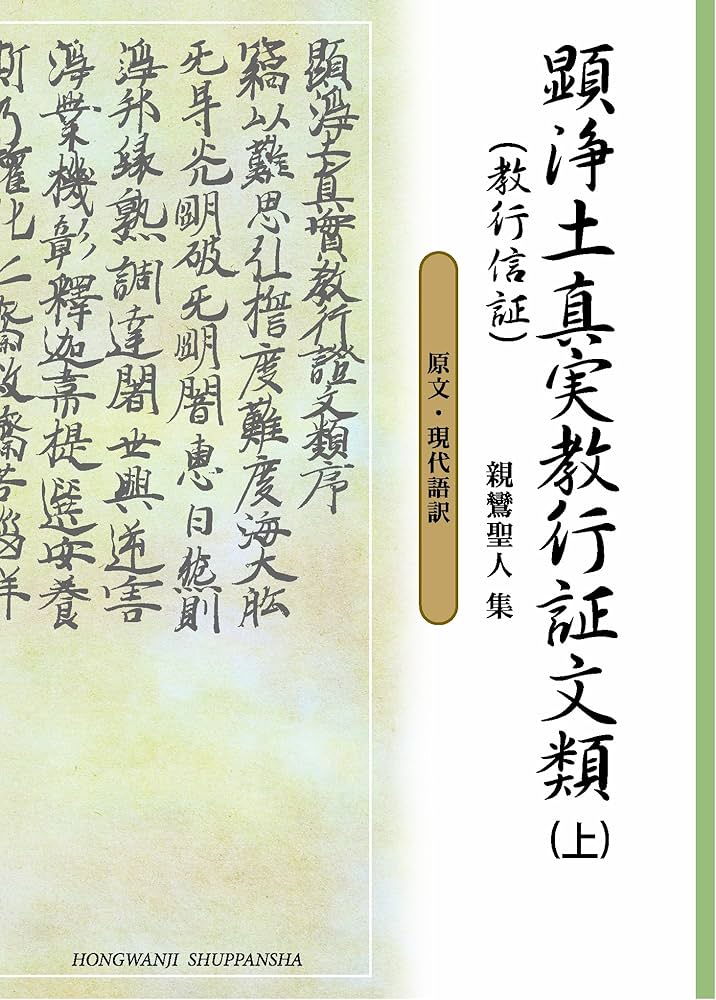 顕浄土真実教行証文類(上)
(教行信証)
親鸞聖人 集
原文・現代語訳
顯淨土真實教行證文類序
竊以難思弘誓度難度海大舩
无㝵光明破无明闇惠日然則
淨邦緣熟調達闍世興逆害
淨業機彰釋迦韋提選安養
斯乃權化仁齊救濟苦惱群
HONGWANJI SHUPPANSHA